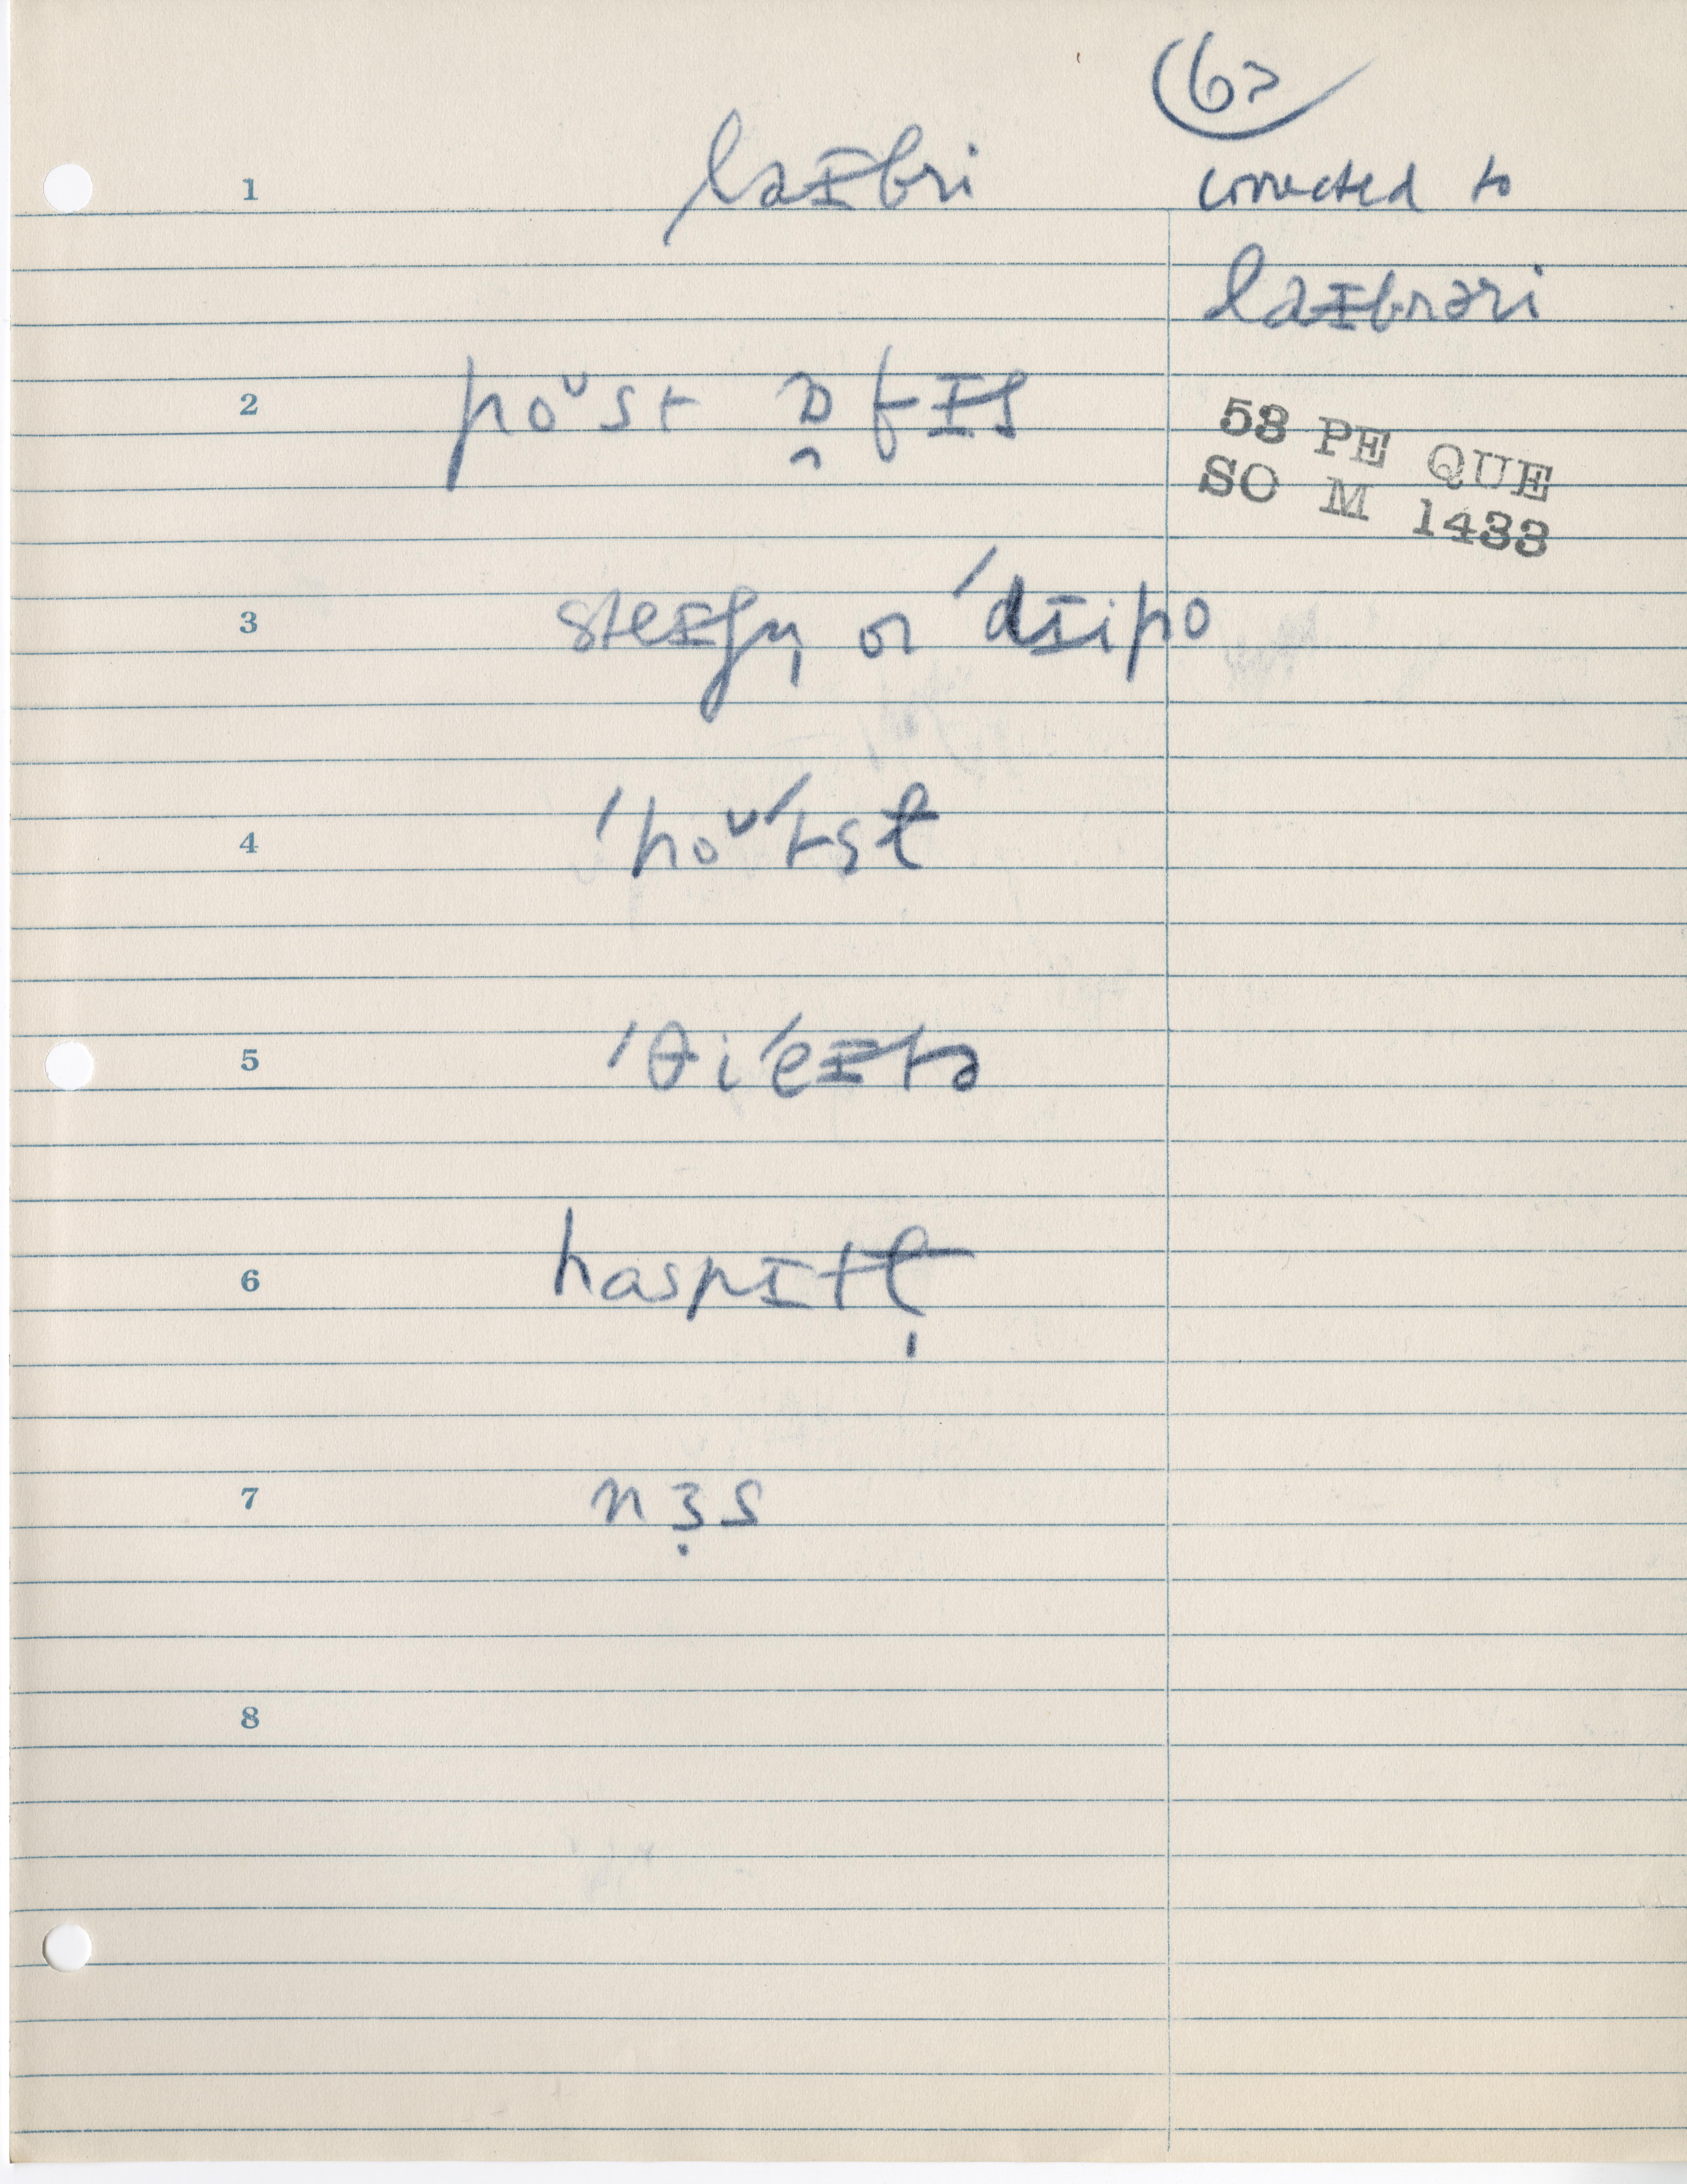 63
1 laɪ̵bri corrected to
laɪ̵brəri
2 poᴜst ɒ̭fɪ̵s
58 PE QUE
SO M 1433
3 steɪ̵ʃn̩ or ˈdɪ̵ipo
4 ˈhoᴜˈtɛɫ
5 ˈθiˈeɪ̵tə
6 haspɪ̵tɫ̩
7 nɜ̣s
8